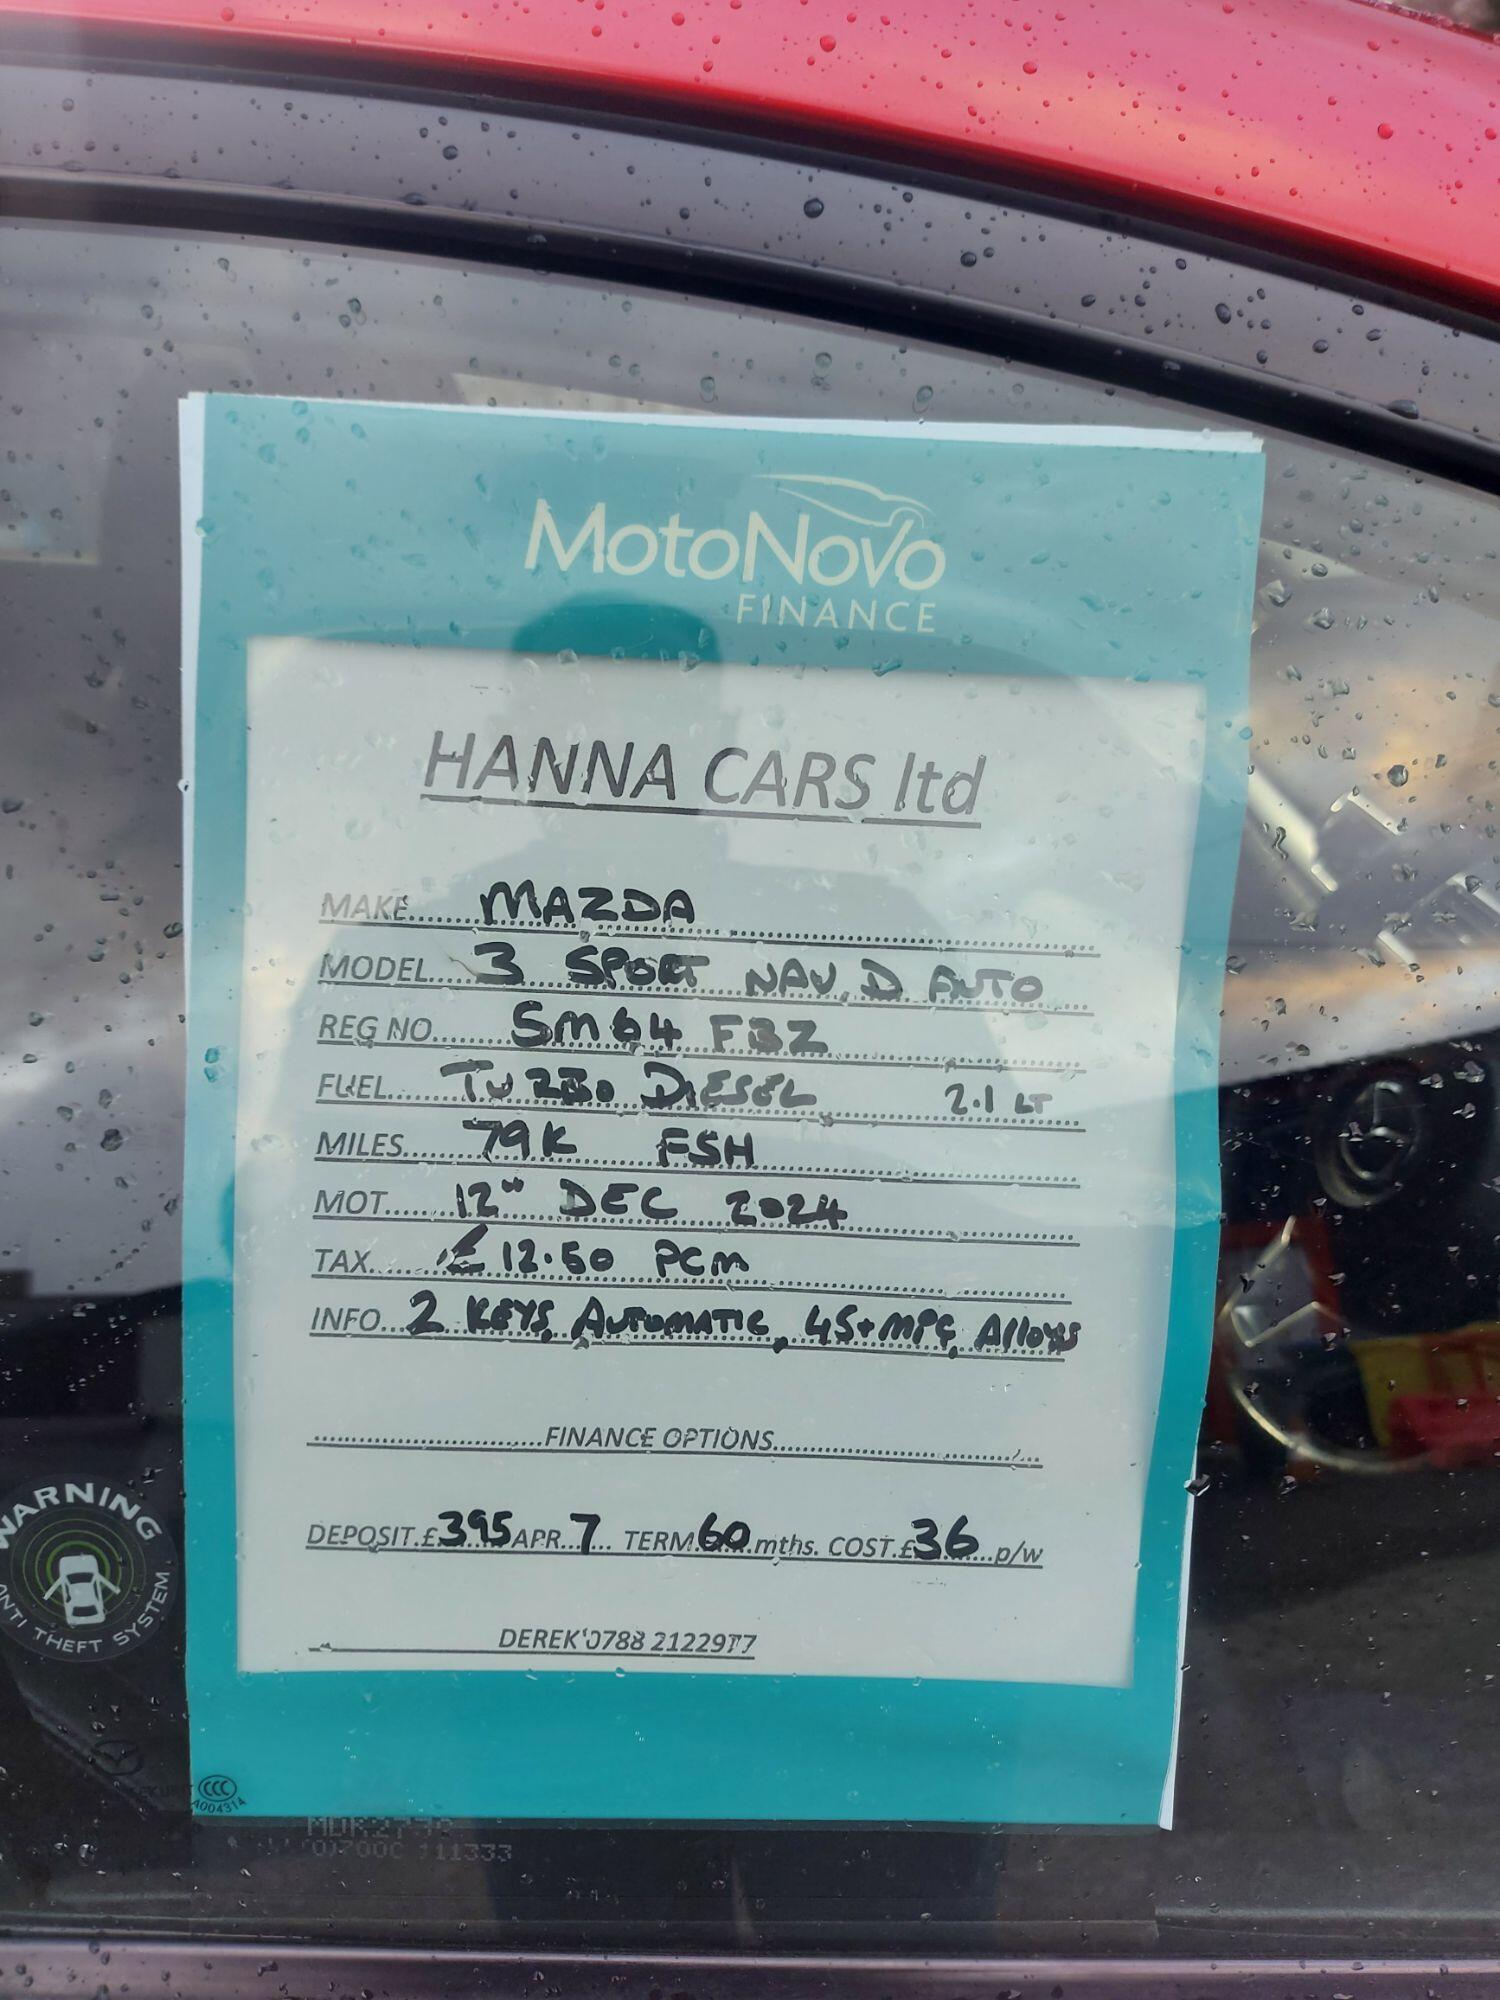 MotoNovo
FINANCE
HANNA CARS ltd
MAKE...... MAZDA
MODEL.... 3 SPORT NAV D AUTO
REG NO...... SM64 FBZ
FUEL...... TURBO DIESEL 2.1 LT
MILES...... 79K FSH
MOT...... 12" DEC 2024
TAX...... £12.50 PCM
INFO... 2 KEYS, AUTOMATIC, 45+MPG, Alloys
FINANCE OPTIONS
DEPOSIT.£395 APR..7.. TERM.60.mths. COST.£36....p/w
DEREK 0788 2122977
WARNING
ANTI THEFT SYSTEM
CCC
A004314
111333